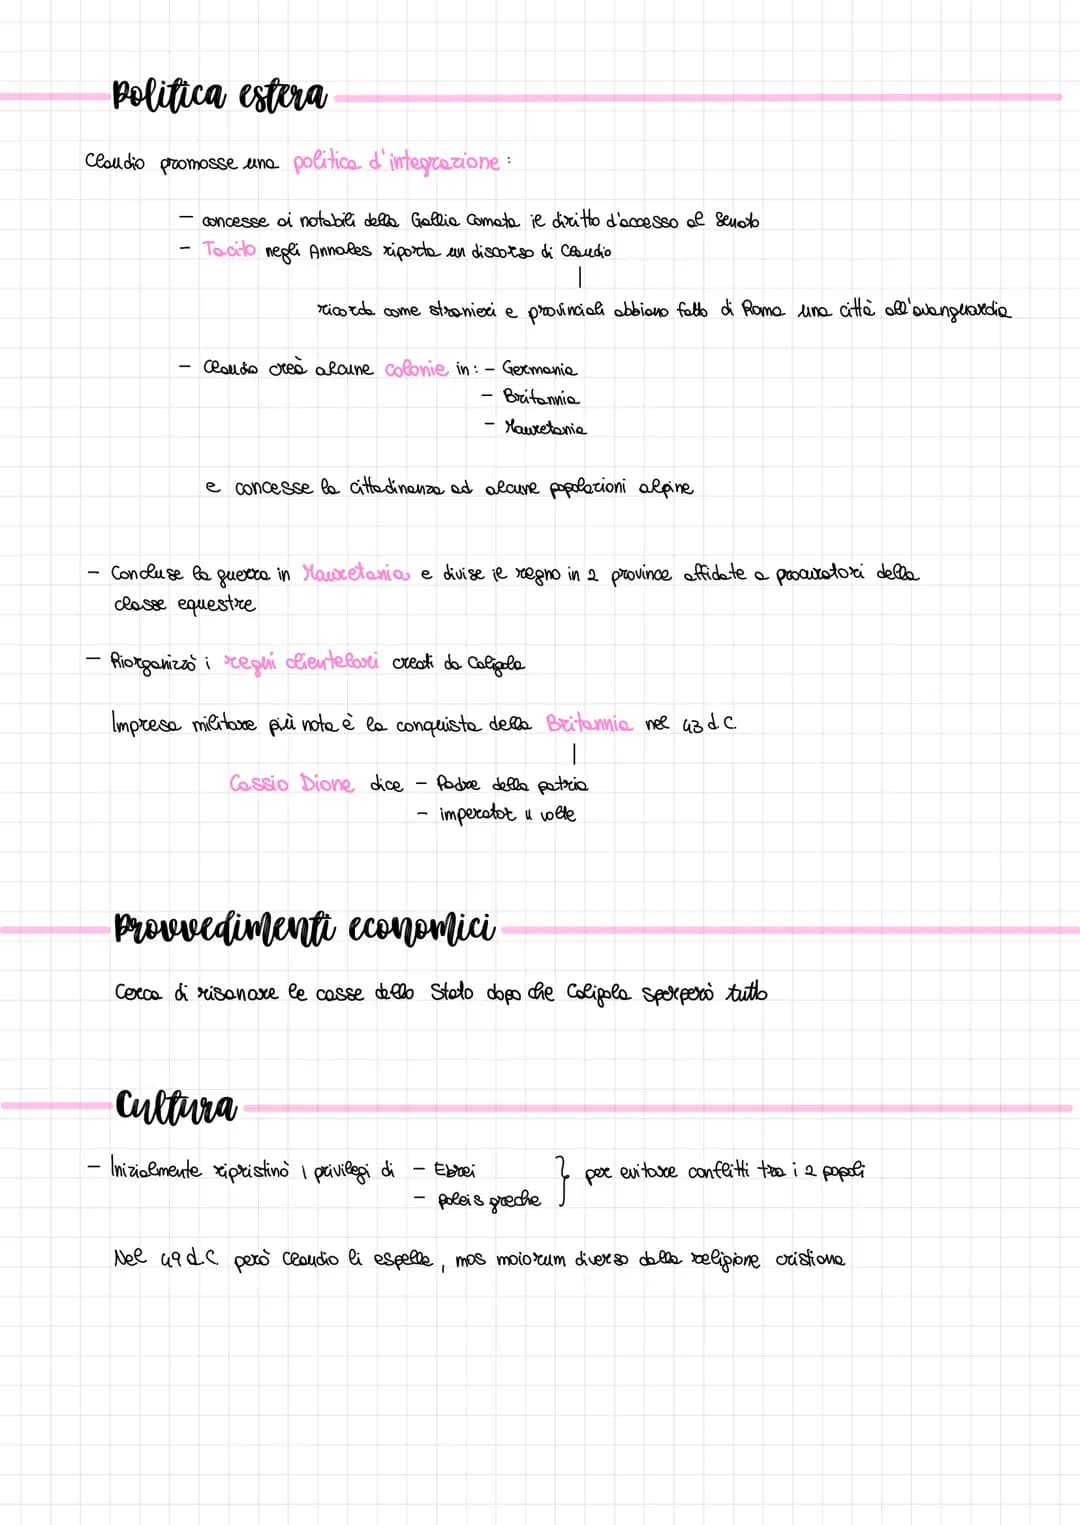 Politica estera
Claudio promosse una politica d'integrazione:
- concesse ai notabili della Gallia Comata il diritto d'accesso al Senato
- Tacito negli Annales riporta un discorso di Claudio
|
ricorda come stranieri e provinciali abbiano fatto di Roma una città all'avanguardia
- Claudio creò alcune colonie in: - Germania
- Britannia
- Mauretania
e concesse la cittadinanza ad alcune popolazioni alpine
- Concluse la guerra in Mauretania e divise il regno in 2 province affidate a procuratori della
classe equestre
- Riorganizzò i regni clientelari creati da Caligola
Impresa militare più nota è la conquista della Britannia nel 43 d.C.
|
Cassio Dione dice - Padre della patria
- imperator 4 volte
Provvedimenti economici
Cerca di risanare le casse dello Stato dopo che Caligola sperperò tutto
Cultura
- Inizialmente ripristinò i privilegi di - Ebrei } per evitare conflitti tra i 2 popoli
- poleis greche
Nel 49 d.C. però Claudio li espelle, mos maiorum diverso dalla religione cristiana